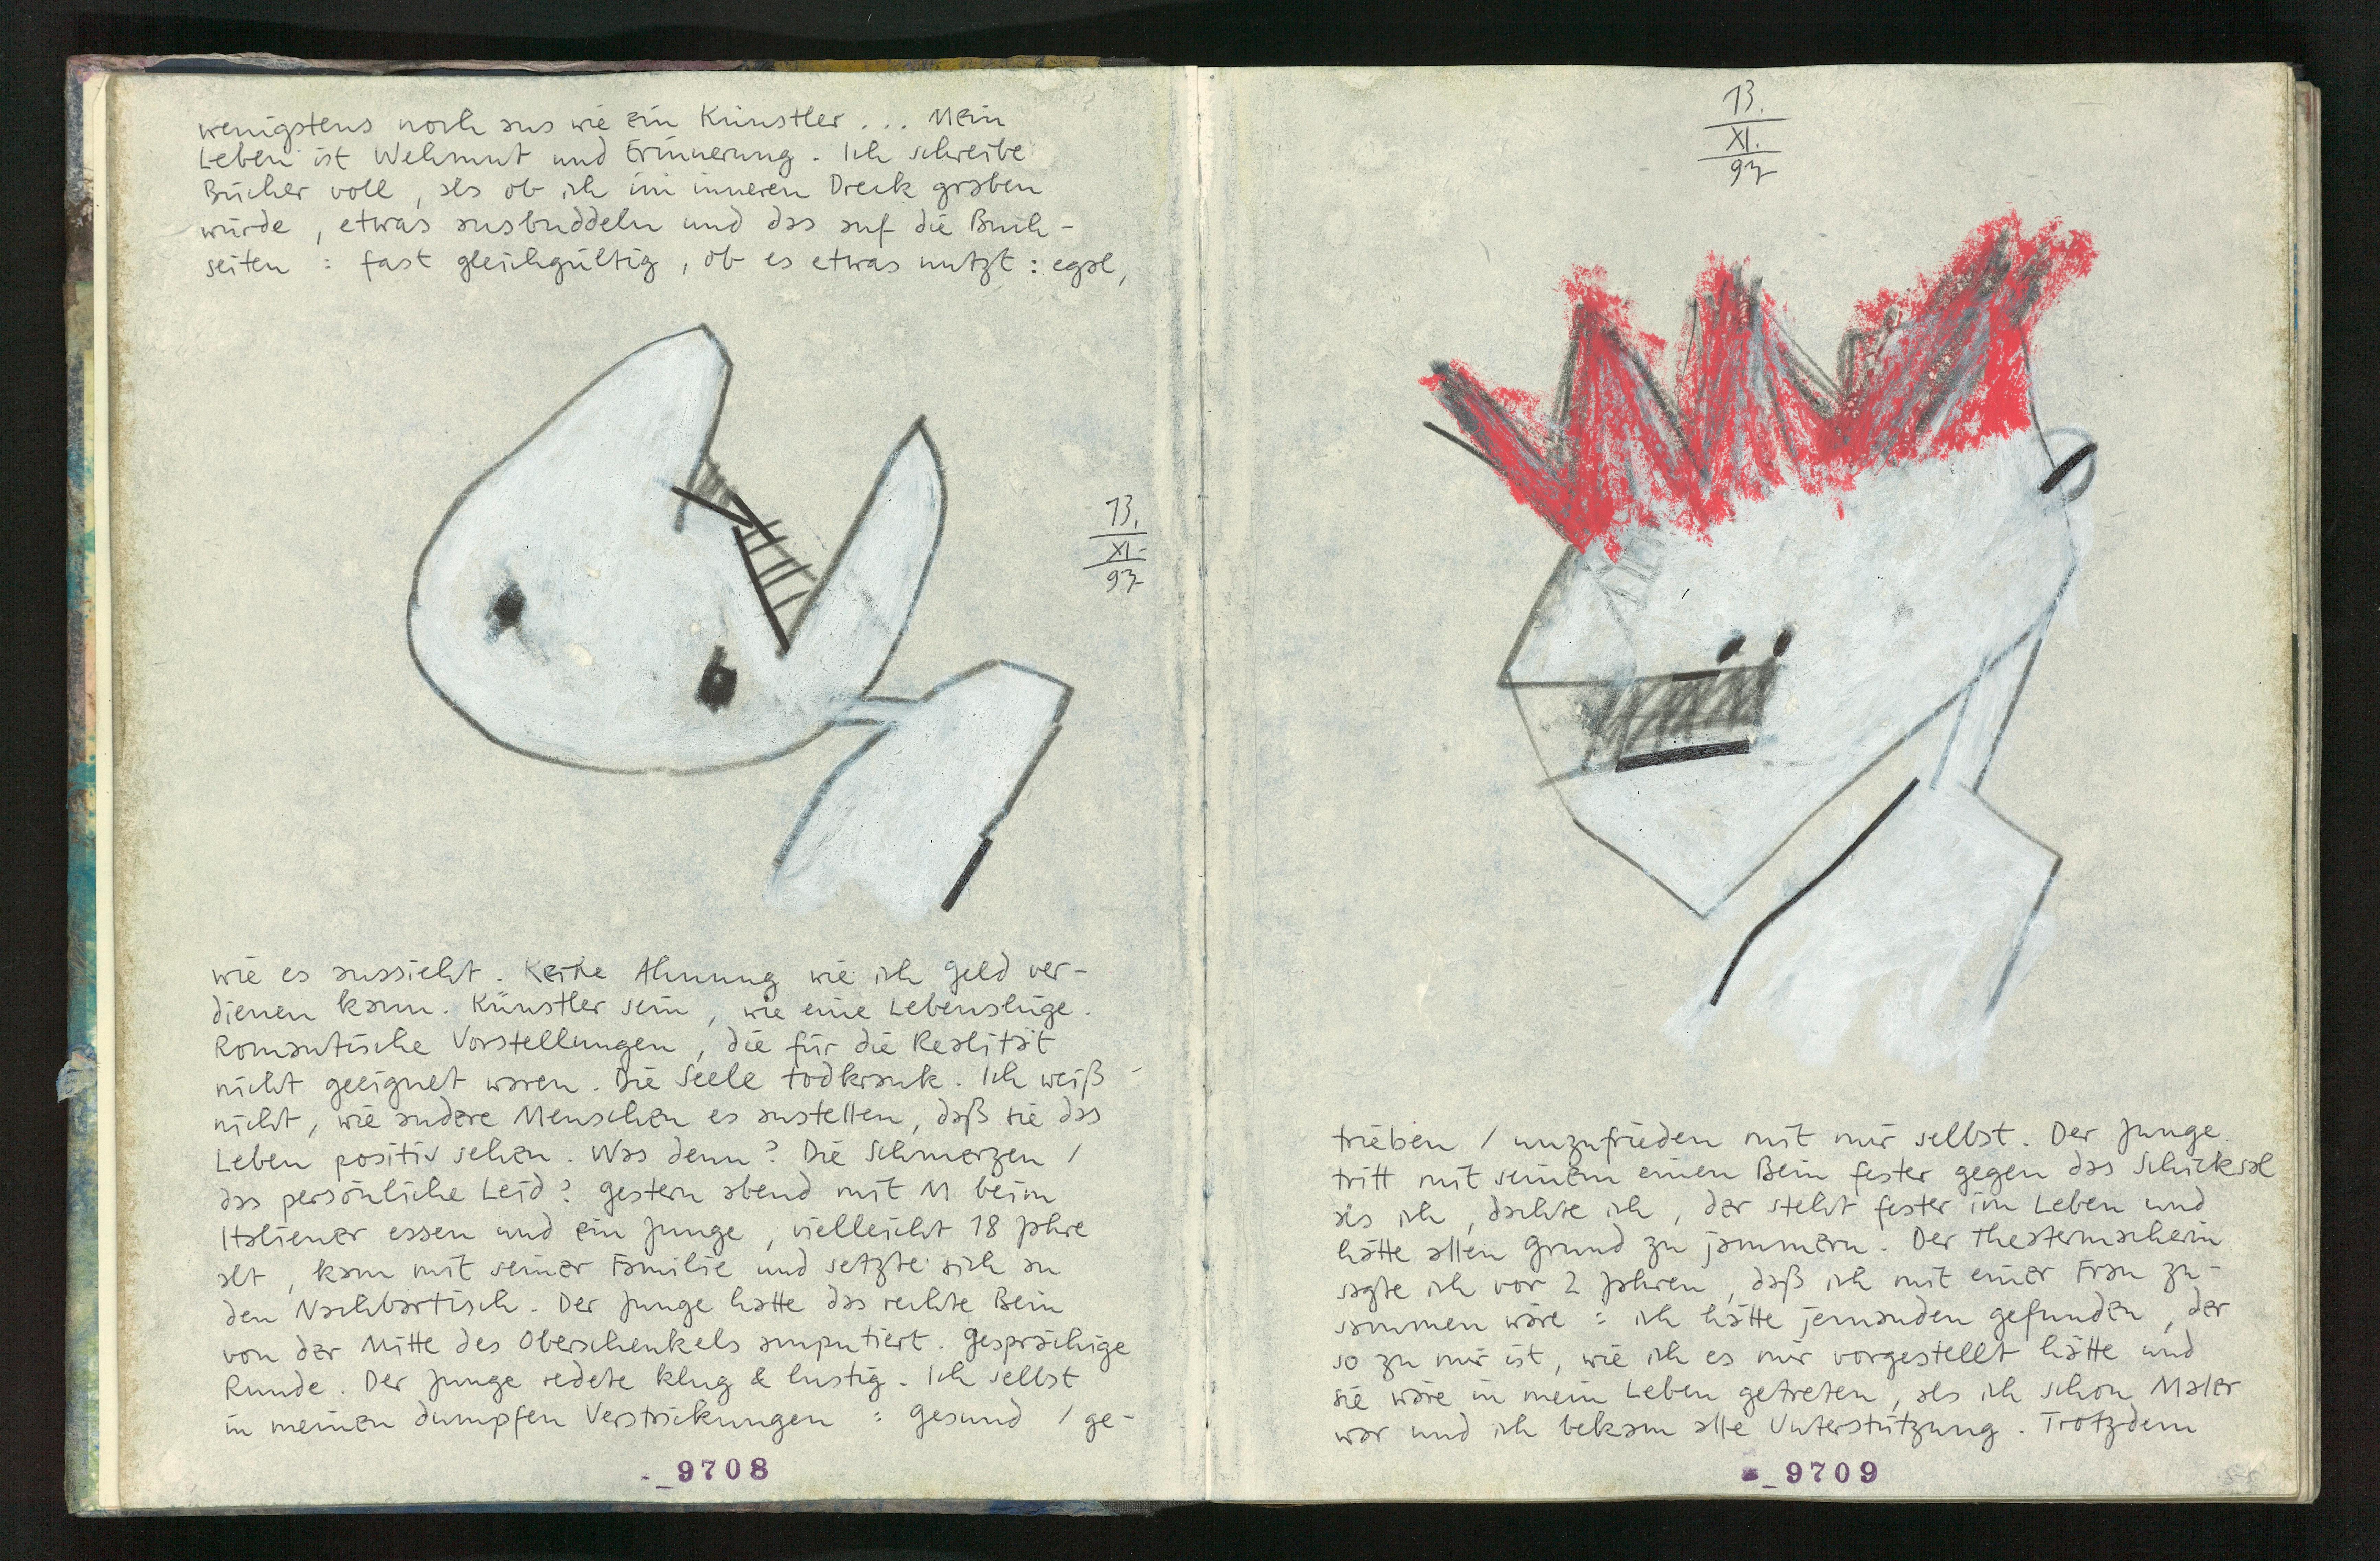 wenigstens noch aus wie ein Künstler ... Mein
Leben ist Wehmut und Erinnerung. Ich schreibe
Bücher voll, als ob ich im inneren Dreck graben
würde, etwas ausbuddeln und das auf die Buch-
seiten : fast gleichgültig, ob es etwas nutzt : egal,
13.
XI.
97
wie es aussieht. Keine Ahnung wie ich Geld ver-
dienen kann. Künstler sein, wie eine Lebenslüge.
Romantische Vorstellungen, die für die Realität
nicht geeignet waren. Die Seele todkrank. Ich weiß
nicht, wie andere Menschen es anstellen, daß sie das
Leben positiv sehen. Was denn? Die Schmerzen /
das persönliche Leid? Gestern abend mit M beim
Italiener essen und ein Junge, vielleicht 18 Jahre
alt, kam mit seiner Familie und setzte sich an
den Nachbartisch. Der Junge hatte das rechte Bein
von der Mitte des Oberschenkels amputiert. Gesprächige
Runde. Der Junge redete klug & lustig. Ich selbst
in meinen dumpfen Verstrickungen : gesund / ge-
_9708
13.
XI.
97
trieben / unzufrieden mit mir selbst. Der Junge
tritt mit seinem einen Bein fester gegen das Schicksal
als ich, dachte ich, der steht fester im Leben und
hätte allen Grund zu jammern. Der Theatermacherin
sagte ich vor 2 Jahren, daß ich mit einer Frau zu-
sammen wäre : ich hätte jemanden gefunden, der
so zu mir ist, wie ich es mir vorgestellt hätte und
sie wäre in mein Leben getreten, als ich schon Maler
war und ich bekam alle Unterstützung. Trotzdem
_9709
55